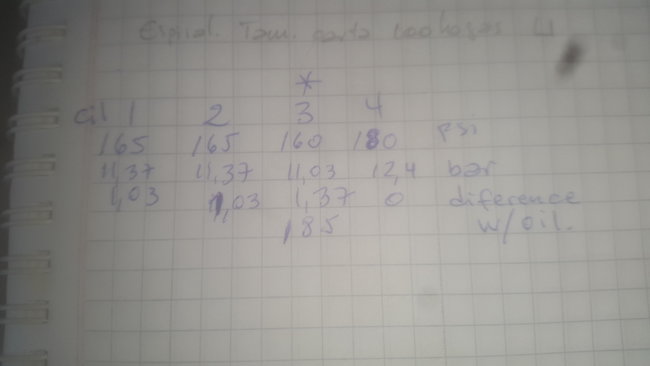 Espiral. Tam. carta
*
cil 1 2 3 4
165 165 160 180 psi
11,37 11,37 11,03 12,4 bar
1,03 1,03 1,37 0 diference
185 w/oil.